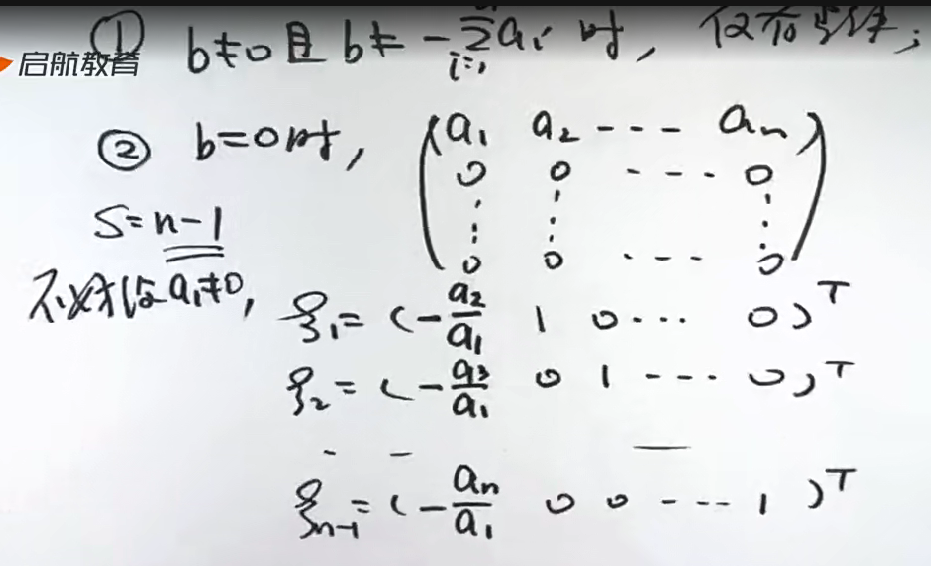 ① b≠0且b≠-∑_{i=1}^{n}a_i时，仅有零解；
启航教育
② b=0时，
( a₁ a₂ --- aₙ )
0 0 --- 0
⋮ ⋮ ⋮
0 0 --- 0
S=n-1
不妨设a₁≠0，
ξ₁=(-a₂/a₁ 1 0 ··· 0)ᵀ
ξ₂=(-a₃/a₁ 0 1 --- 0)ᵀ
- - —
ξₙ₋₁=(-aₙ/a₁ 0 0 --- 1)ᵀ